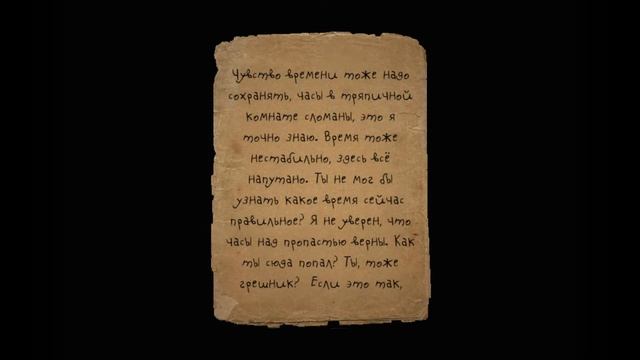 Чувство времени тоже надо
сохранять, часы в тряпичной
комнате сломаны, это я
точно знаю. Время тоже
нестабильно, здесь всё
напутано. Ты не мог бы
узнать какое время сейчас
правильное? Я не уверен, что
часы над пропастью верны. Как
ты сюда попал? Ты, тоже
грешник? Если это так,